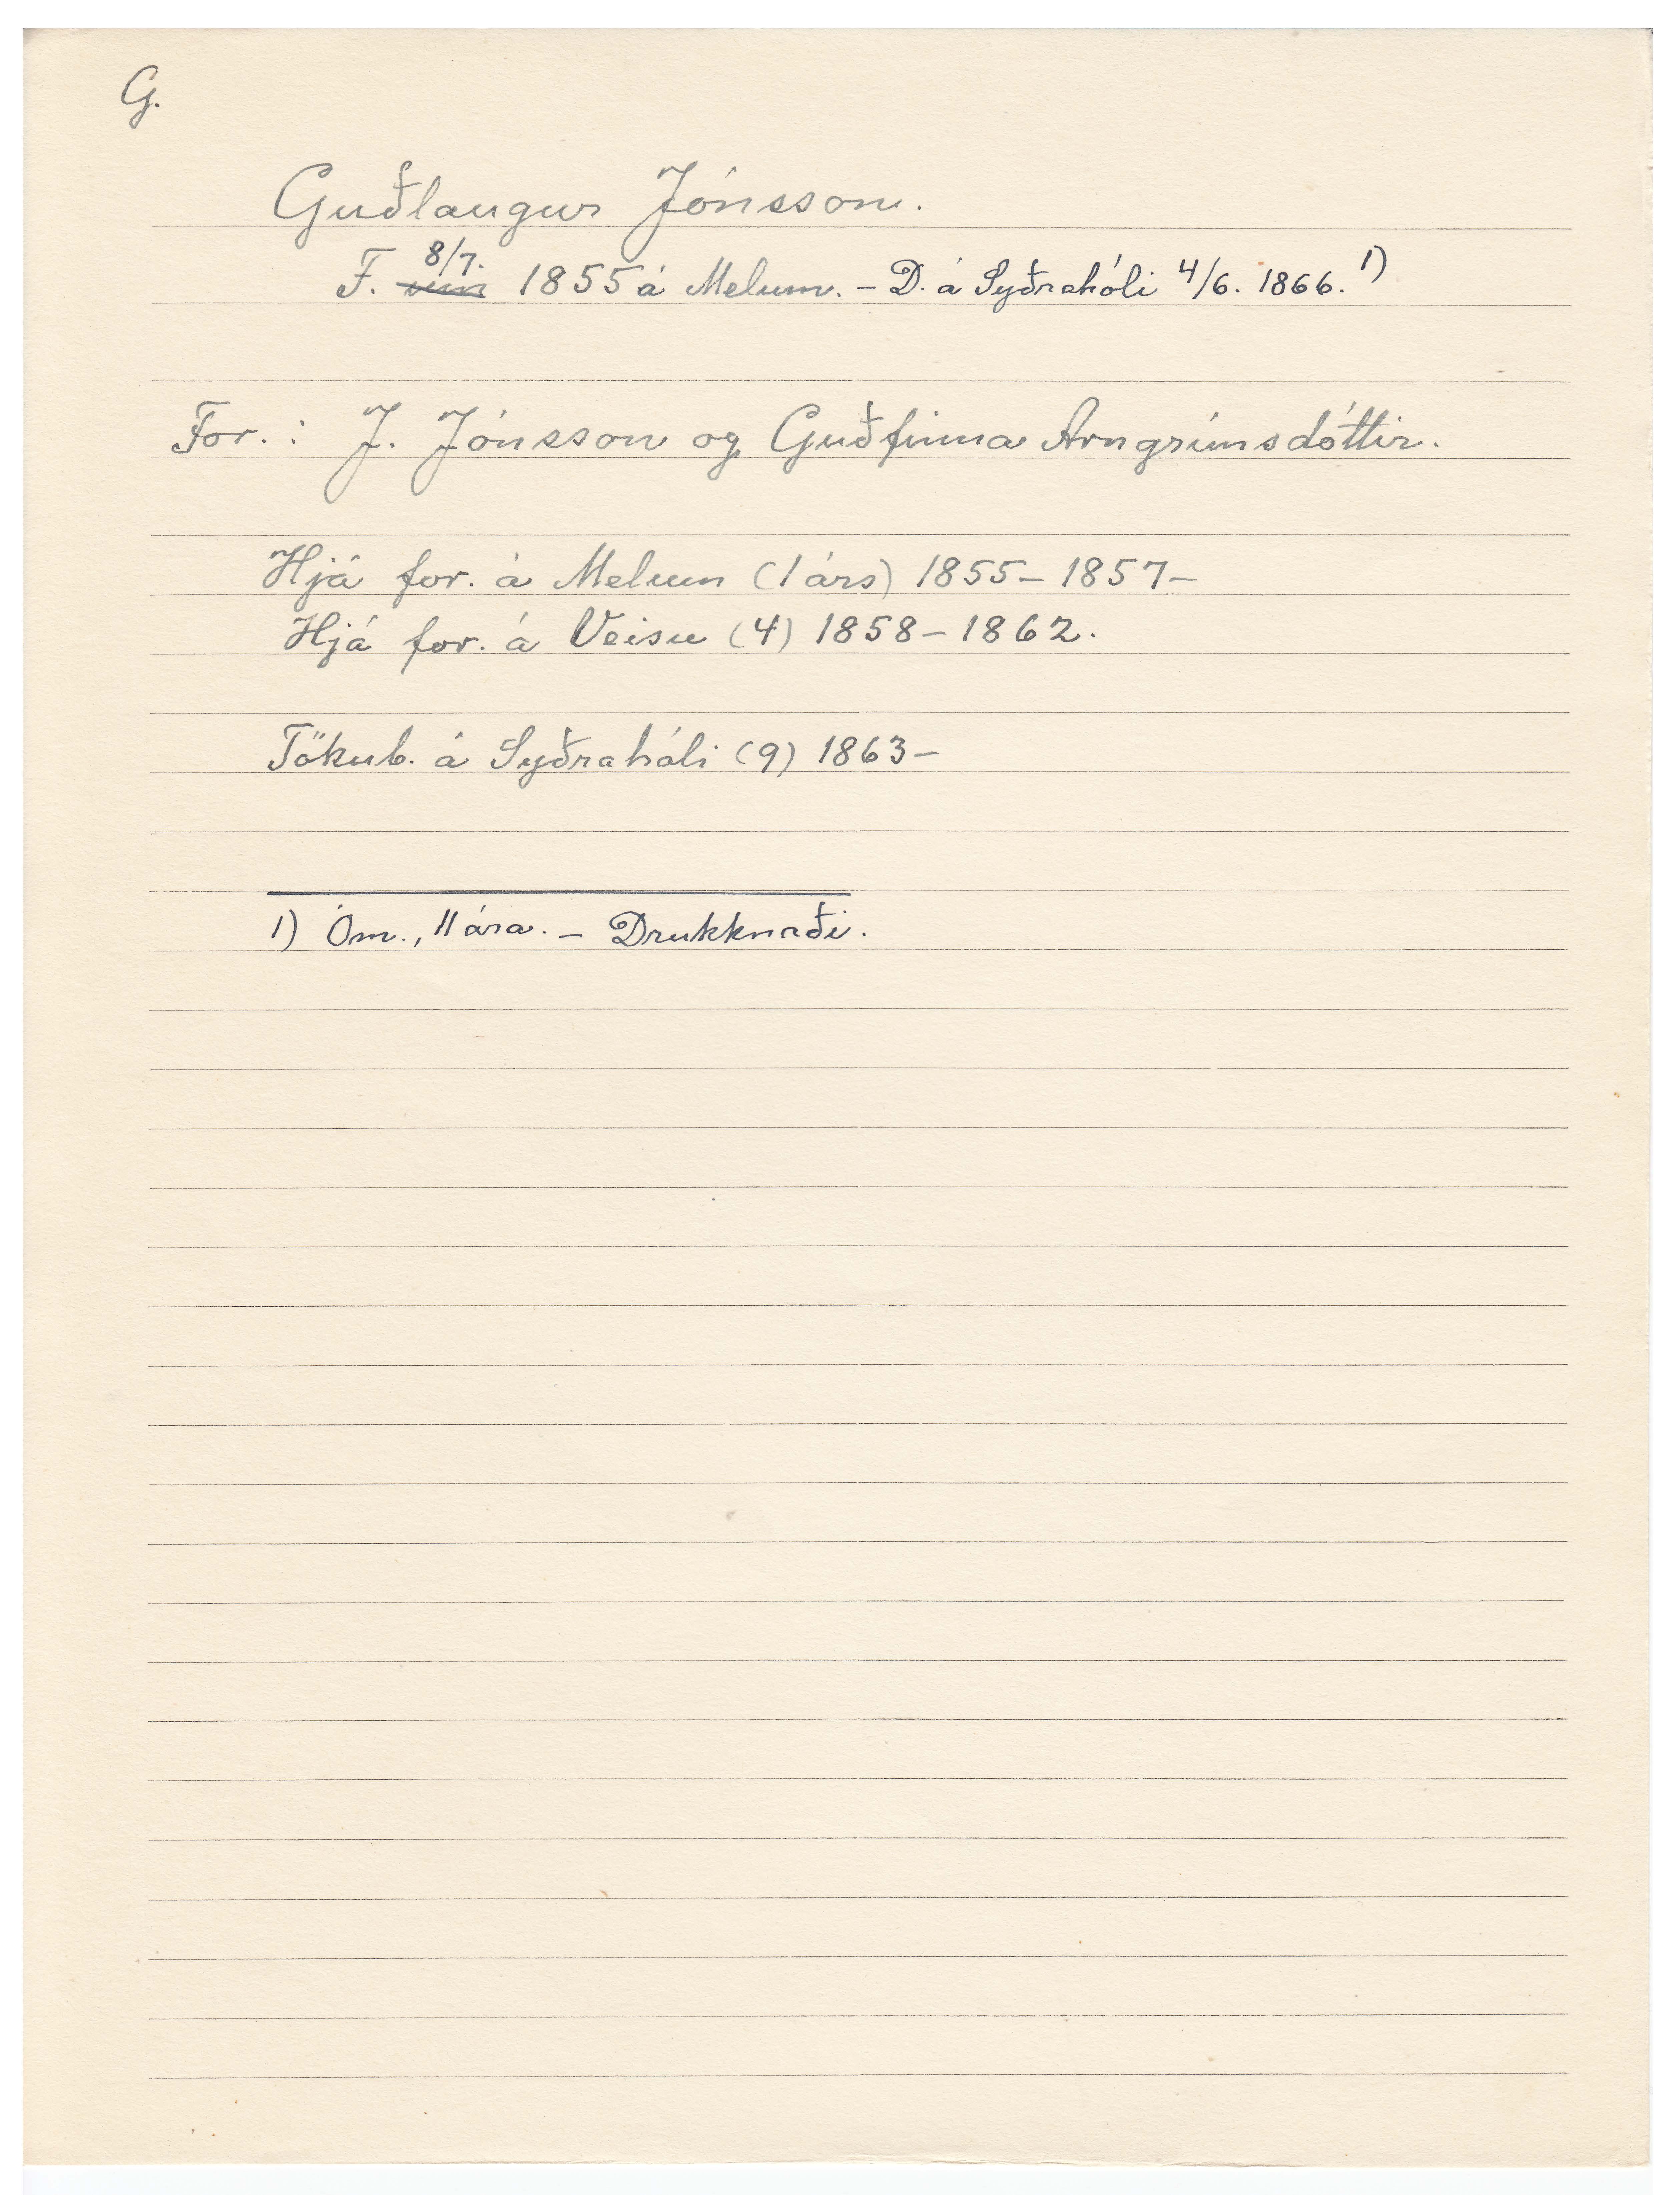 G.
Guðlaugur Jónsson.
8/7.
F. um 1855 á Melum. – D. á Syðrahóli 4/6. 1866. 1)
For. : J. Jónsson og Guðfinna Arngrímsdóttir.
Hjá for. á Melum (1 árs) 1855 – 1857 –
Hjá for. á Veisu (4) 1858 – 1862.
Tökub. á Syðrahóli (9) 1863 –
1) Óm., 11 ára. – Drukknaði.